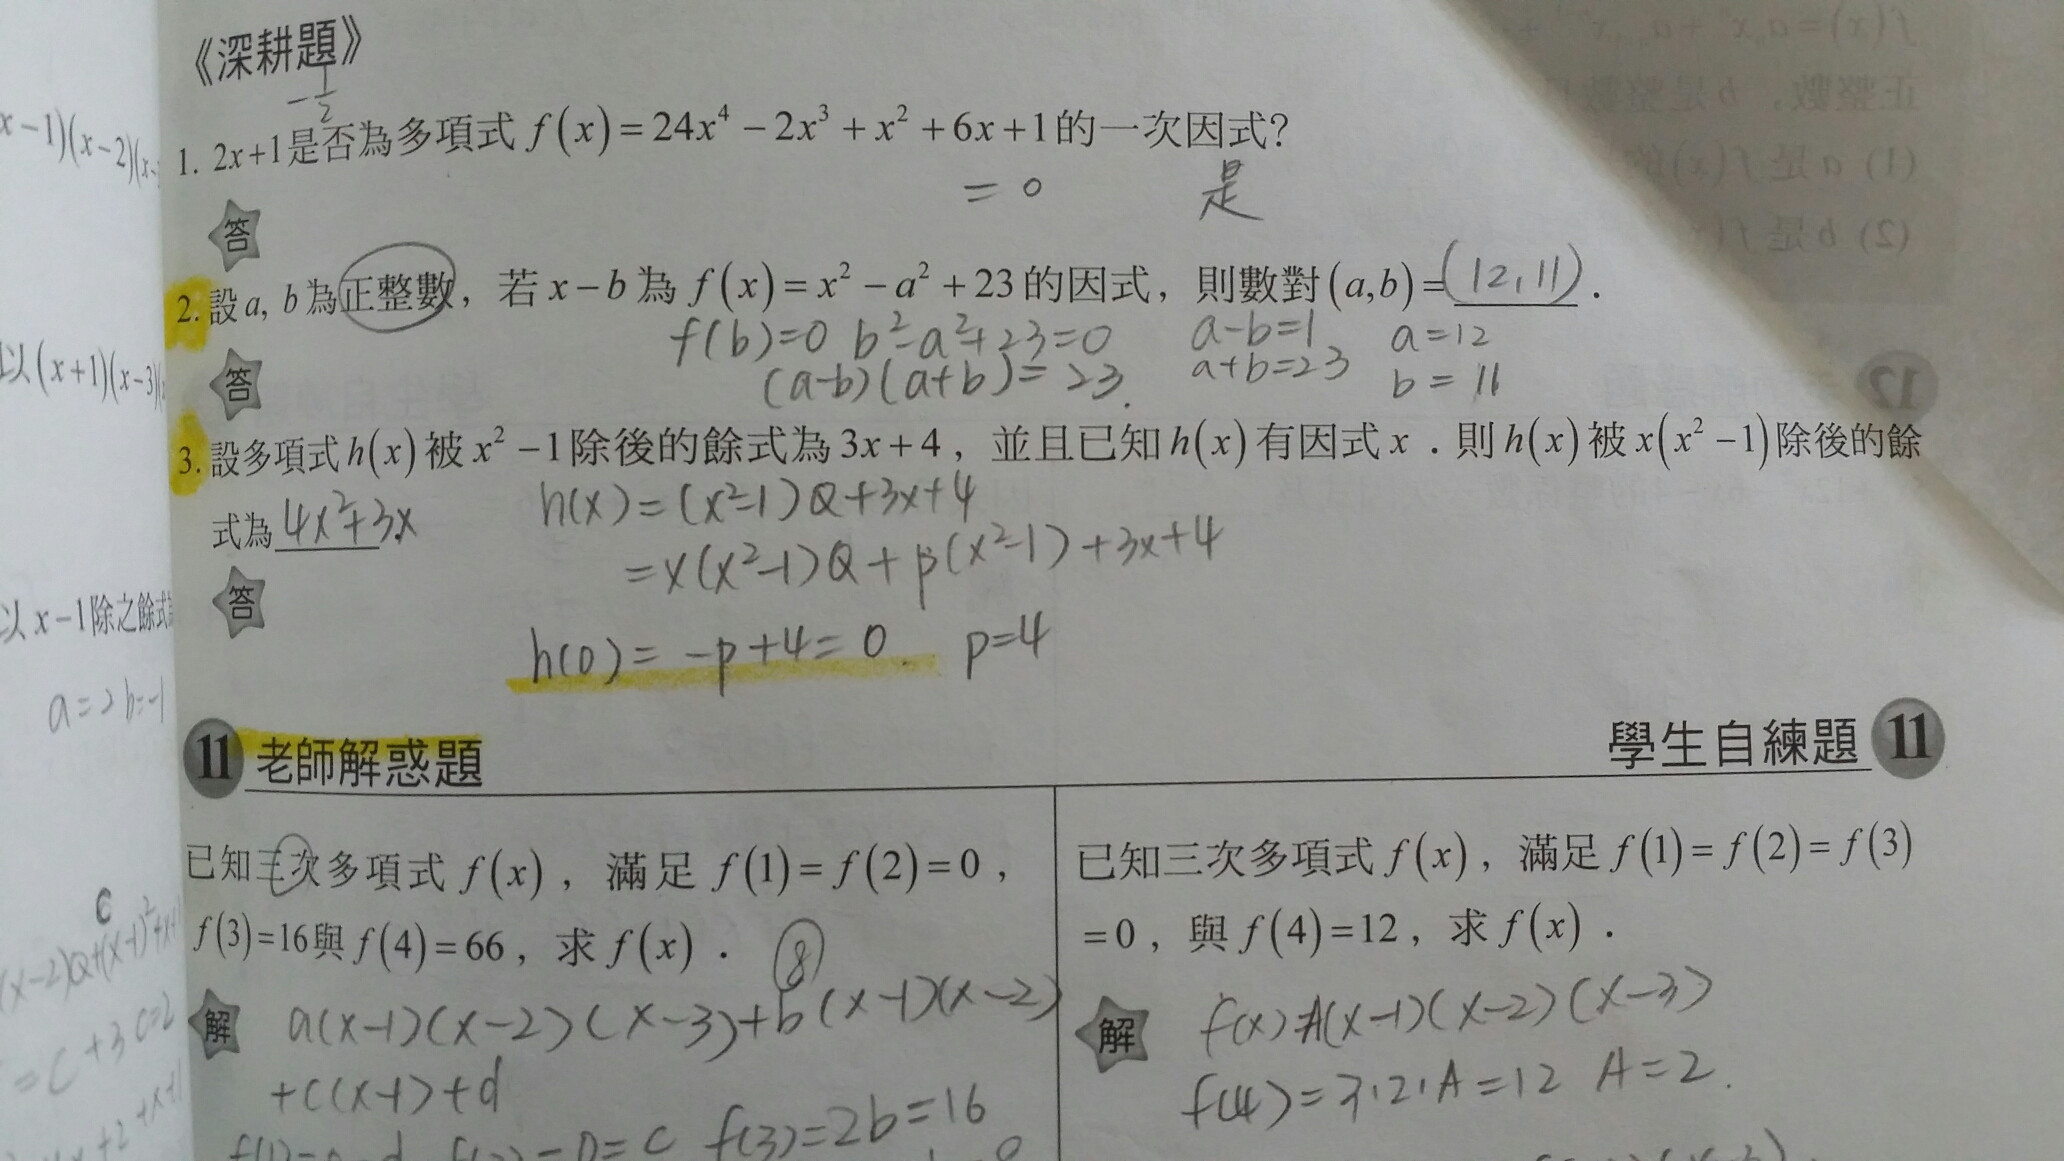 《深耕題》
-1/2
1. 2x+1是否為多項式 f(x)=24x⁴-2x³+x²+6x+1的一次因式?
=0 是
答
2. 設a, b為正整數，若x-b為f(x)=x²-a²+23的因式，則數對(a,b)=(12,11).
f(b)=0 b²-a²+23=0 a-b=1 a=12
答 (a-b)(a+b)=23. a+b=23 b=11
3. 設多項式h(x)被x²-1除後的餘式為3x+4，並且已知h(x)有因式x．則h(x)被x(x²-1)除後的餘
式為4x²+3x. h(x)=(x²-1)Q+3x+4
=x(x²-1)Q+p(x²-1)+3x+4
答
h(0)=-p+4=0 p=4
11 老師解惑題
已知三次多項式f(x)，滿足f(1)=f(2)=0，
f(3)=16與f(4)=66，求f(x)．
8
解 a(x-1)(x-2)(x-3)+b(x-1)(x-2)
+c(x-1)+d
f(3)=2b=16
學生自練題 11
已知三次多項式f(x)，滿足f(1)=f(2)=f(3)
=0，與f(4)=12，求f(x)．
解 f(x)=A(x-1)(x-2)(x-3)
f(4)=3·2·A=12 A=2.
x-1)(x-2)(x-
以(x+1)(x-3)(
以x-1除之餘式
a=2 b=-1
c
(x-2)Q+(x-1)²+x+1
=c+3 c=2
f(x)=aₙxⁿ+aₙ
正整數，b是整數
(1) a是f(x)的
(2) b是f(x
12